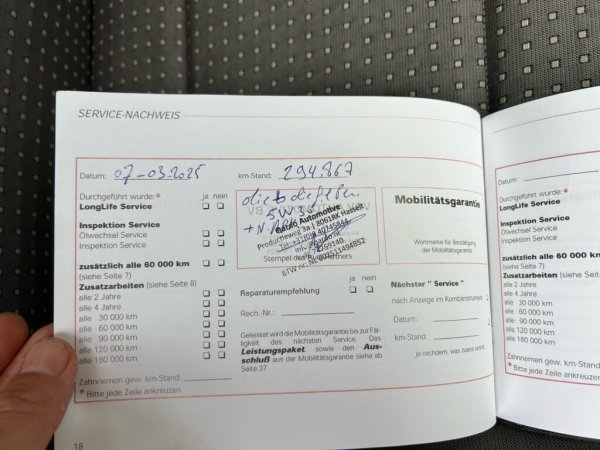 SERVICE-NACHWEIS
Datum: 07-03-2025 km-Stand: 294.867
Durchgeführt wurde:* ja nein
LongLife Service
Inspektion Service
Ölwechsel Service
Inspektion Service
zusätzlich alle 60 000 km
(siehe Seite 7)
Zusatzarbeiten (siehe Seite 8)
alle 2 Jahre
alle 4 Jahre
alle 30 000 km
alle 60 000 km
alle 90 000 km
alle 120 000 km
alle 180 000 km
Zahnriemen gew. km-Stand:
* Bitte jede Zeile ankreuzen
5W30
Automotive
Productieweg 3a | 8061RK Hasselt
Stempel des Partners
ja nein
Reparaturempfehlung
Rech.-Nr.:
Geleistet wird die Mobilitätsgarantie bis zur Fäl-
ligkeit des nächsten Service. Das
Leistungspaket, sowie den Aus-
schluß aus der Mobilitätsgarantie siehe ab
Seite 37
Mobilitätsgarantie
Wertmarke für Bestätigung
der Mobilitätsgarantie
Nächster " Service "
nach Anzeige im Kombiinstrument
Datum:
km-Stand:
je nachdem, was zuerst eintritt
18
Datum:
Durchgeführt wurde:*
LongLife Service
Inspektion Service
Ölwechsel Service
Inspektion Service
zusätzlich alle 60 000 km
(siehe Seite 7)
Zusatzarbeiten (siehe Seite 8)
alle 2 Jahre
alle 4 Jahre
alle 30 000 km
alle 60 000 km
alle 90 000 km
alle 120 000 km
alle 180 000 km
Zahnriemen gew. km-Stand:
* Bitte jede Zeile ankreuzen